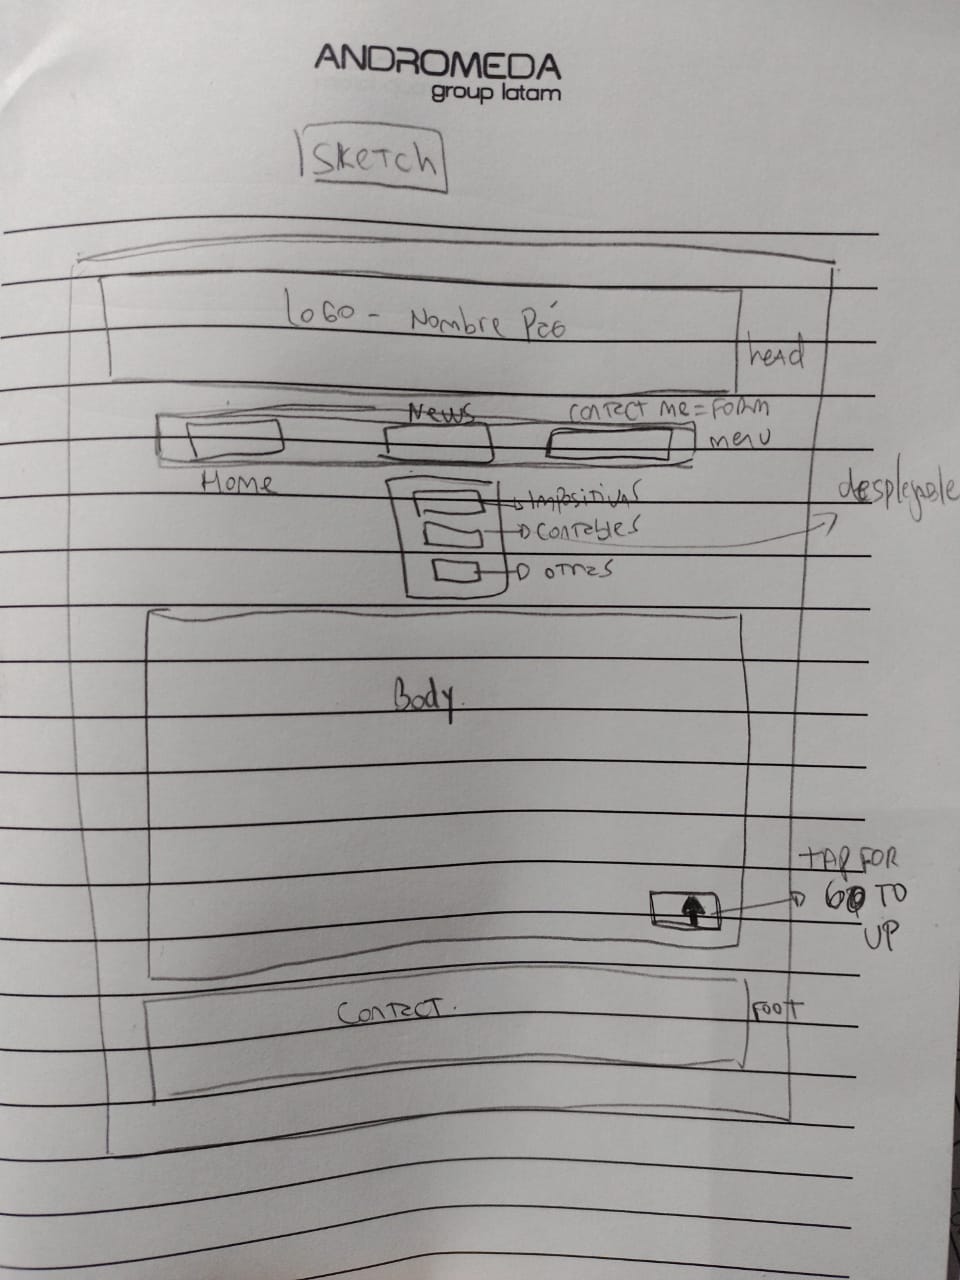 ANDROMEDA
group latam
Sketch
Logo - Nombre Pág
head
News
contact me = Form
menu
Home
desplegable
Impositivas
contables
otras
Body.
TAP FOR
GO TO
UP
Contact.
Foot